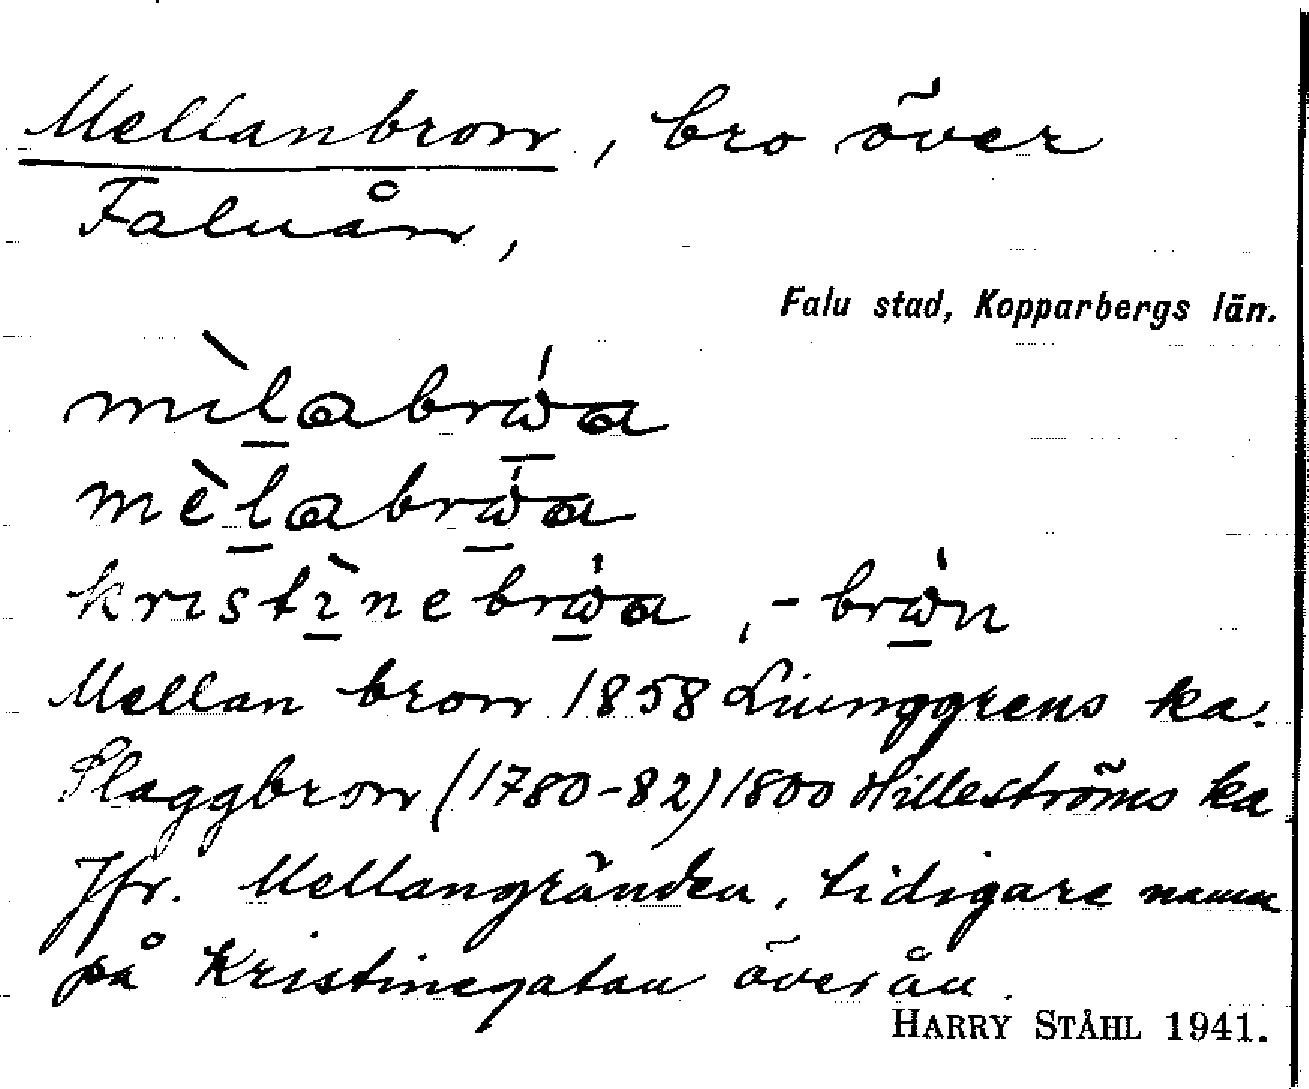 Mellanbron, bro över
Faluån,
Falu stad, Kopparbergs län.
mı̀l̲abrώ̲a
mèl̲abrώ̲a
krıstı̲̀nebrώ̲a, -brώ̲n
Mellan bron 1858 Liunggrens ka.
Slaggbron (1780-82) 1800 Hilleströms ka
Jfr. Mellangränden, tidigare namn
på Kristinegatan över ån.
HARRY STÅHL 1941.